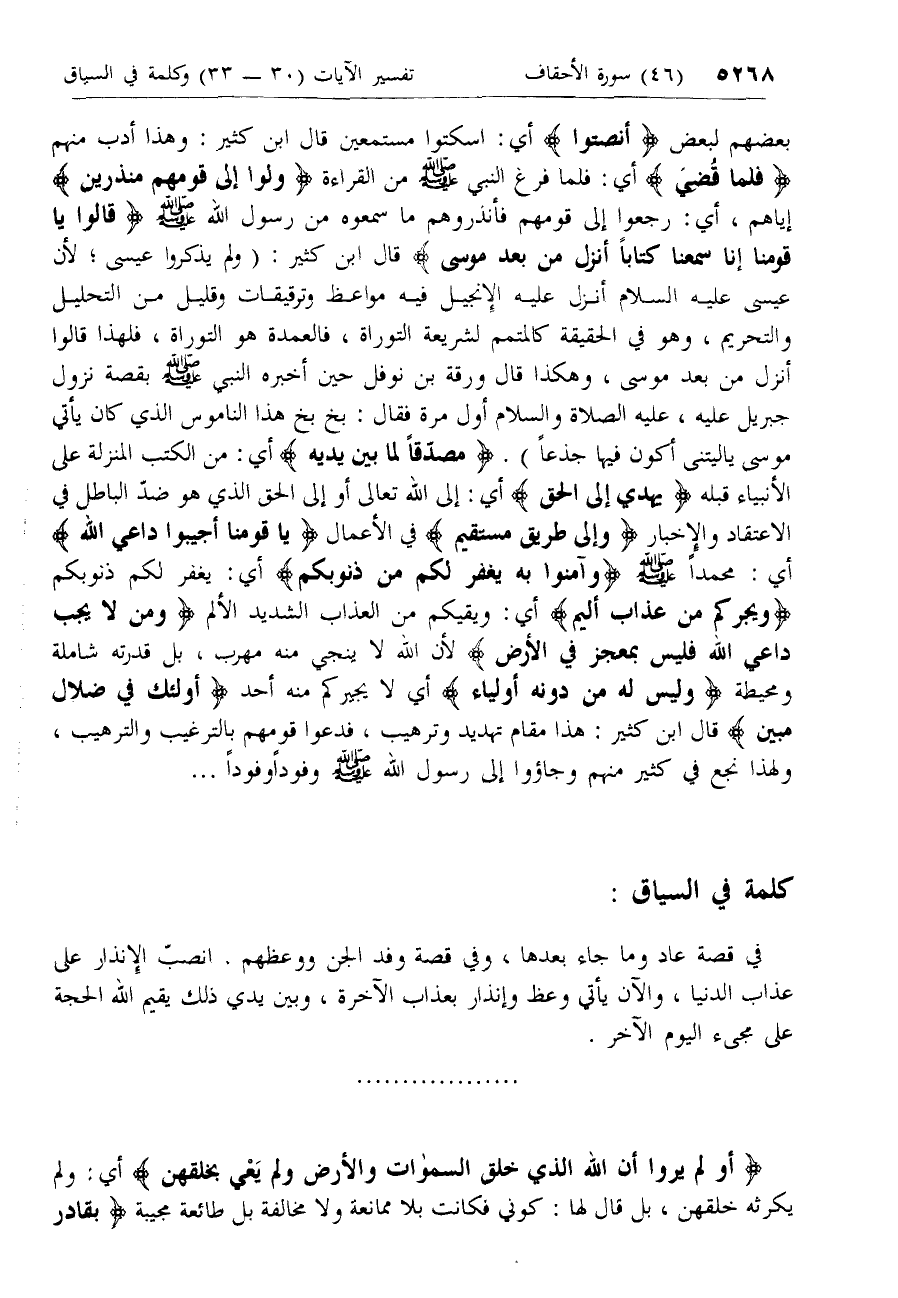 ٥٢٦٨ (٤٦) سورة الأحقاف تفسير الآيات (٣٠ — ٣٣) وكلمة في السياق
بعضهم لبعض ﴿ أنصتوا ﴾ أي : اسكتوا مستمعين قال ابن كثير : وهذا أدب منهم
﴿ فلما قُضيَ ﴾ أي : فلما فرغ النبي ﷺ من القراءة ﴿ ولوا إلى قومهم منذرين ﴾
إياهم ، أي : رجعوا إلى قومهم فأنذروهم ما سمعوه من رسول الله ﷺ ﴿ قالوا يا
قومنا إنا سمعنا كتاباً أنزل من بعد موسى ﴾ قال ابن كثير : ( ولم يذكروا عيسى ؛ لأن
عيسى عليه السلام أنزل عليه الإنجيل فيه مواعظ وترقيقات وقليل من التحليل
والتحريم ، وهو في الحقيقة كالمتمم لشريعة التوراة ، فالعمدة هو التوراة ، فلهذا قالوا
أنزل من بعد موسى ، وهكذا قال ورقة بن نوفل حين أخبره النبي ﷺ بقصة نزول
جبريل عليه ، عليه الصلاة والسلام أول مرة فقال : بخ بخ هذا الناموس الذي كان يأتي
موسى ياليتنى أكون فيها جذعاً ) . ﴿ مصدّقاً لما بين يديه ﴾ أي : من الكتب المنزلة على
الأنبياء قبله ﴿ يهدي إلى الحق ﴾ أي : إلى الله تعالى أو إلى الحق الذي هو ضدّ الباطل في
الاعتقاد والإخبار ﴿ وإلى طريق مستقيم ﴾ في الأعمال ﴿ يا قومنا أجيبوا داعي الله ﴾
أي : محمداً ﷺ ﴿وآمنوا به يغفر لكم من ذنوبكم﴾ أي : يغفر لكم ذنوبكم
﴿ويجركم من عذاب أليم﴾ أي : ويقيكم من العذاب الشديد الألم ﴿ ومن لا يجب
داعي الله فليس بمعجز في الأرض ﴾ لأن الله لا ينجي منه مهرب ، بل قدرته شاملة
ومحيطة ﴿ وليس له من دونه أولياء ﴾ أي لا يجيركم منه أحد ﴿ أولئك في ضلال
مبين ﴾ قال ابن كثير : هذا مقام تهديد وترهيب ، فدعوا قومهم بالترغيب والترهيب ،
ولهذا نجع في كثير منهم وجاؤوا إلى رسول الله ﷺ وفوداًوفوداً ...
كلمة في السياق :
في قصة عاد وما جاء بعدها ، وفي قصة وفد الجن ووعظهم . انصبّ الإنذار على
عذاب الدنيا ، والآن يأتي وعظ وإنذار بعذاب الآخرة ، وبين يدي ذلك يقيم الله الحجة
على مجىء اليوم الآخر .
..................
﴿ أو لم يروا أن الله الذي خلق السمٰوات والأرض ولم يَعْي بخلقهن ﴾ أي : ولم
يكرثه خلقهن ، بل قال لها : كوني فكانت بلا ممانعة ولا مخالفة بل طائعة مجيبة ﴿ بقادر